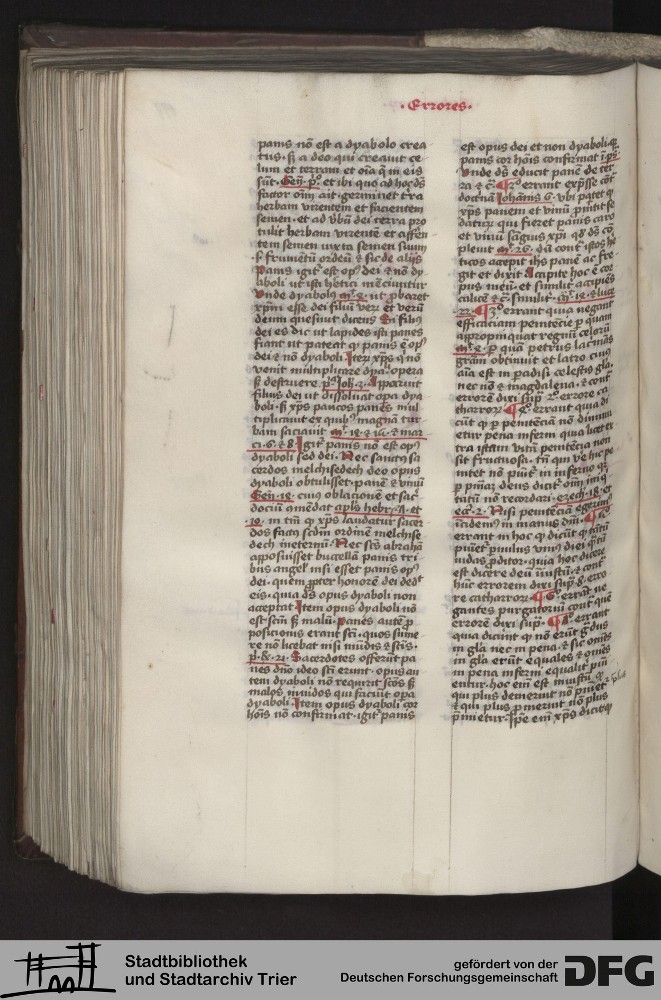 · Errores ·
panis nō est a dyabolo crea
tus · sꝫ a deo qui creauit ce
lum et terram et oīa q̄ in eis
sūt · Geñ · pº · et ibi
factor oīm ait · germinet tr̄a
herbam virentem et facientem
semen · et ad v̄bū dei terra pro
tulit herbam virentē et afferē
tem semen iuxta semen suum
frumētū ordeū et sic de alijs
Panis igit̄ est opꝰ dei et nō dy
aboli ut isti hētici menciuntur
Vnde dyabolꝰ mͭ · 4 · ut ꝓbaret
xp̄m esse dei filiū veri et verū
deum quesiuit dicens Si filiꝰ
dei es dic ut lapides isti panes
fiant ut pateat qꝫ panis ē opꝰ
dei et nō dyaboli Itē xp̄s qͥ nō
venit multiplicare dya opera
sꝫ destruere · pª Joh 3 · Apparuit
filius dei ut dissoluat opa dya
boli · sꝫ xp̄s paucos panes mul
tiplicauit ex quibꝰ magnā tur
bam saciauit mͭ · 14 · et 15 · et mar
ci · 6 · et 8 · Igit̄ panis nō est opꝰ
dyaboli sed dei · Nec sanctus sa
cerdos melchisedech deo opus
dyaboli obtulisset · panē et vinū
Geñ · 14 · cuiꝰ oblacionē et sac̄
dociū cōmēdat apl̄s hebr · 7 · et
· 10 · in tm̄ qꝫ xp̄s laudatur sacer
dos factꝰ scdm̄ ordinē melchise
dech ineternū · Nec sc̄s abrahā
apposuisset buccellā panis tri
bus angel̄ nisi esset panis opꝰ
dei · quem ꝓpter honorē dei dedͭ
eis · quia dꝰ opus dyaboli non
acceptat Item opus dyaboli nō
est sc̄m sꝫ malū · Panes autē ꝓ
posicionis erant sc̄i · quos sume
re nō licebat nisi mūdis et sc̄is ·
pº · R · 21 · Sacerdotes offerūt pa
nes dn̄o ideo sc̄i erunt · opus au
tem dyaboli nō requirit sc̄os sꝫ
malos mūdos qui faciūt opa
dyaboli · Item opus dyaboli cor
hoīs nō confirmat · igit̄ panis
est opus dei et non dyaboli · qꝫ
panis cor hoīs confirmat ī ps̄ ·
Vnde dꝰ educit panē de ter
ra et c̄ · ¶ 2º errant exp̄sse cōt̄
doctnā Johānis 6 · vbi patet qꝫ
xp̄s panem et vinū
daturꝰ qui fieret panis caro
et vinū sanguis xp̄i qd̄ dꝰ cō
pleuit mͭ · 26 · dū cont̄ istos he
ticos accepit ihs panē ac fre
git et dixit Accipite hoc ē cor
pus meū · et similit̄ accipiēs
calicē et c̄ similit̄ · mͨ · 14 · et luce
· 22 · ¶ 3º errant quia negant
efficaciam penitēcie ꝑ quam
appropinquat regnū celorū
mͭ · 4 · ꝑ quā petrus lacimās
grām obtinuit et latro cuiꝰ
aīa est in padisi celestis gl̄a ·
nec nō et magdalena · et cont̄
errorē dixi supͣ 2º errore ca
tharroꝝ ¶ 4º errant quia di
cūt qꝫ ꝑ penitēciā nō diminu
etur pena inferni quia licet ex
tra istam vitā penitēcia non
sit fructuosa · tn̄ qui ve hic pe
nitet nō puīt̄ in inferno qꝫ
ꝑ pm̄az deus dicit̄ oīm iniq
tatū nō recordari · ezech · 18 · et
eͨ · 2 · Nisi penitēciā egerint
incidemꝰ in manus dn̄i · ¶ 5º
errant in hoc qꝫ dicūt qꝫ tātū
puīet̄ pūulus vniꝰ diei qͣtū
iudas ꝓditor · quia hoc dicere
est dicere deū iniustū · et cont̄
hūc errorem dixi supͣ 8 erro
re catharroꝝ · ¶ 6º errāt ne
gantes purgatoriū cont̄ que
errorē dixi supͣ · ¶ 7º errant
quia dicūt qꝫ nō erūt gͣdus
in gl̄a nec in pena · et sic oēs
in gl̄a erūt equales et oēs
in pena inferni equalit̄ puī
entur · hoc enī est iniustū · qꝫ
qui plus demerunt nō puīet̄ plus
et qui plus ꝓmerunt nō plus
p̄mietur · Ip̄e enī xp̄s dicit qꝫ
Stadtbibliothek
und Stadtarchiv Trier
gefördert von der
Deutschen Forschungsgemeinschaft
DFG